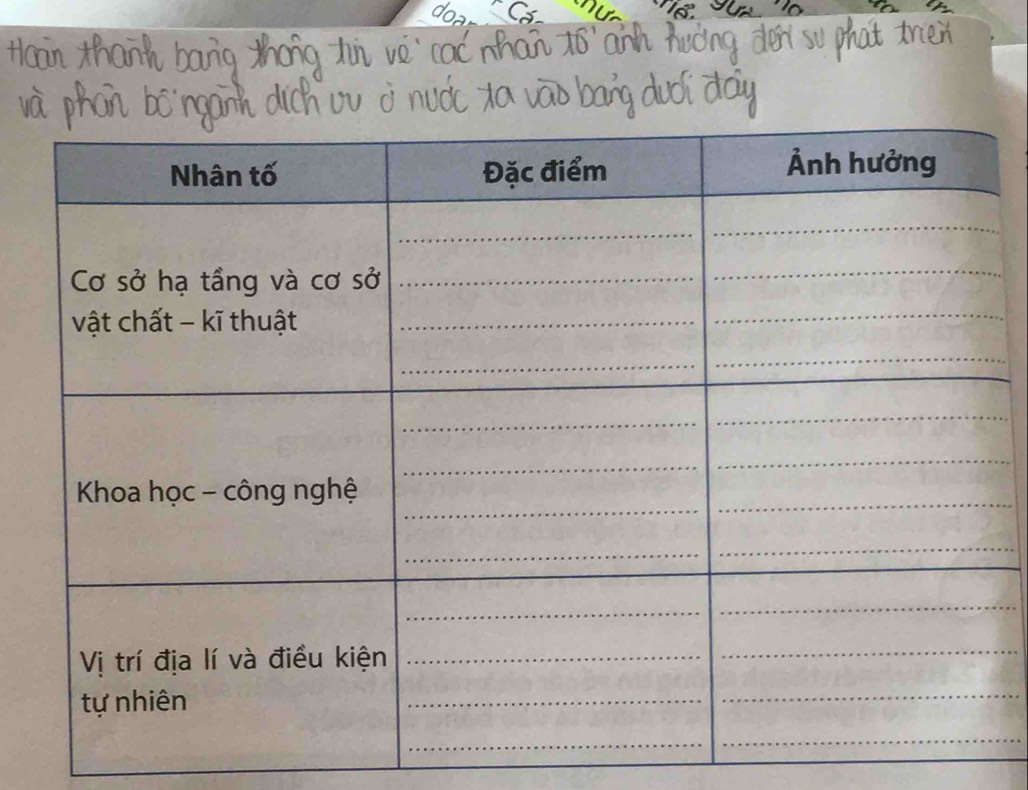 Hoàn thành bảng thông tin về các nhân tố ảnh hưởng đến sự phát triển
và phân bố ngành dịch vụ ở nước ta vào bảng dưới đây
Nhân tố Đặc điểm Ảnh hưởng
Cơ sở hạ tầng và cơ sở
vật chất – kĩ thuật
Khoa học – công nghệ
Vị trí địa lí và điều kiện
tự nhiên